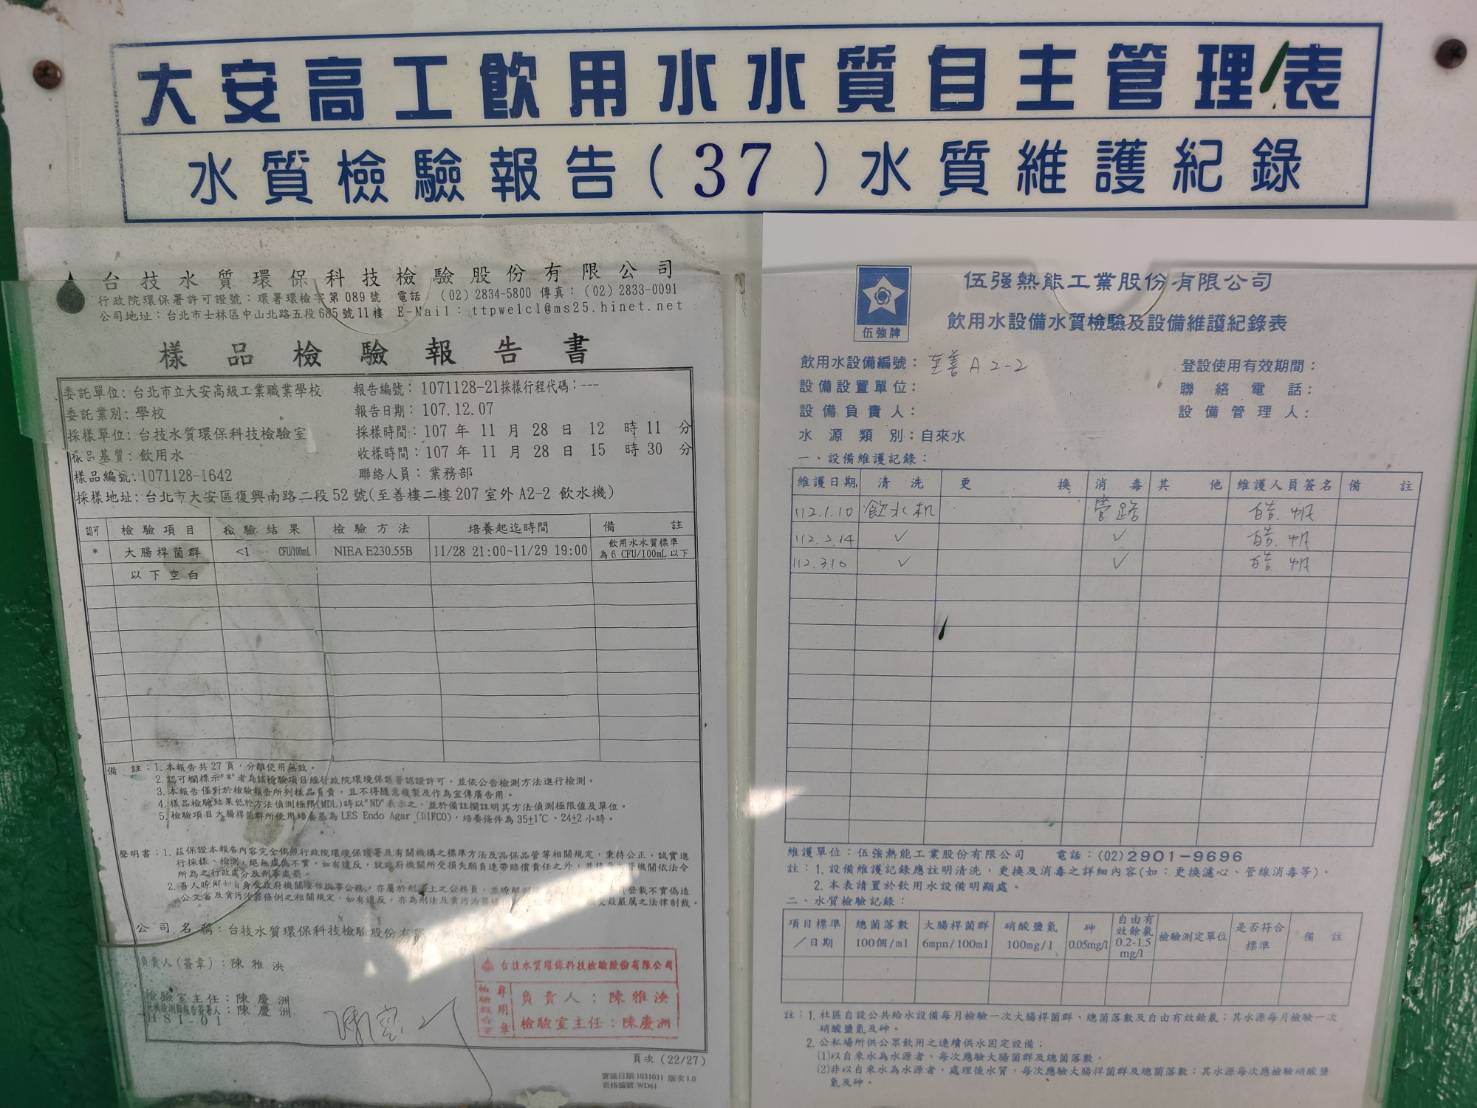 大安高工飲用水水質自主管理表
水質檢驗報告(37)水質維護紀錄
台技水質環保科技檢驗股份有限公司
行政院環保署許可證號：環署環檢字第089號 電話 (02)2834-5800 傳真：(02)2833-0091
公司地址：台北市士林區中山北路五段685號11樓 E-Mail：ttpwelcl@ms25.hinet.net
樣品檢驗報告書
委託單位：台北市立大安高級工業職業學校 報告編號：1071128-21採樣行程代碼：---
委託業別：學校 報告日期：107.12.07
採樣單位：台技水質環保科技檢驗室 採樣時間：107 年 11 月 28 日 12 時 11 分
樣品基質：飲用水 收樣時間：107 年 11 月 28 日 15 時 30 分
樣品編號：1071128-1642 聯絡人員：業務部
採樣地址：台北市大安區復興南路二段52號(至善樓二樓207室外A2-2 飲水機)
認可 檢驗項目 檢驗結果 檢驗方法 培養起迄時間 備註
* 大腸桿菌群 <1 CFU/100mL NIEA E230.55B 11/28 21:00~11/29 19:00 飲用水水質標準
為6 CFU/100mL以下
以下空白
備 註：1.本報告共27頁，分離使用無效。
2.認可欄標示"*"者為該檢驗項目經行政院環境保護署認證許可，並依公告檢測方法進行檢測。
3.本報告僅對於檢驗報告所列樣品負責，且不得隨意複製及作為宣傳廣告用。
4.樣品檢驗結果低於方法偵測極限(MDL)時以"ND"表示之，並於備註欄註明其方法偵測極限值及單位。
5.檢驗項目大腸桿菌群所使用培養基為LES Endo Agar (DIFCO)，培養條件為35±1℃、24±2小時。
聲明書：1.茲保證本報告內容完全依照行政院環境保護署及有關機構之標準方法及品保品管等相關規定，秉持公正、誠實進
行採樣、檢測，絕無虛偽不實，如有違反，就政府機關所受損失願負連帶賠償責任之外，並接受主管機關依法令
所為之行政處分及刑事處罰。
公司名稱：台技水質環保科技檢驗股份有限
負責人(簽章)：陳雅泱
檢驗室主任：陳慶洲
：陳慶洲
台技水質環保科技檢驗股份有限公司
檢驗報告書專用章
負責人：陳雅泱
檢驗室主任：陳慶洲
頁次(22/27)
實施日期:1031031 版次1.0
表格編號:WD61
伍強牌
伍强熱能工業股份有限公司
飲用水設備水質檢驗及設備維護紀錄表
飲用水設備編號：至善A2-2 登設使用有效期間：
設備設置單位： 聯絡電話：
設備負責人： 設備管理人：
水源類別：自來水
一、設備維護記錄：
維護日期 清洗 更換 消毒 其他 維護人員簽名 備註
112.1.10 飲水机 管路
112.2.14 ✓ ✓
112.3.10 ✓ ✓
維護單位：伍強熱能工業股份有限公司 電話：(02)2901-9696
註：1.設備維護記錄應註明清洗、更換及消毒之詳細內容(如：更換濾心、管線消毒等)。
2.本表請置於飲用水設備明顯處。
二、水質檢驗記錄：
項目標準／日期 總菌落數 100個/ml 大腸桿菌群 6mpn/100ml 硝酸鹽氮 100mg/l 砷 0.05mg/l 自由有效餘氯 0.2-1.5 mg/l 檢驗測定單位 是否符合標準 備註
註：1.社區自設公共給水設備每月檢驗一次大腸桿菌群、總菌落數及自由有效餘氯；其水源每月檢驗一次
硝酸鹽氮及砷。
2.公私場所供公眾飲用之連續供水固定設備：
(1)以自來水為水源者，每次應驗大腸菌群及總菌落數。
(2)非以自來水為水源者，處理後水質，每次應驗大腸桿菌群及總菌落數；其水源每次應檢驗硝酸鹽
氮及砷。